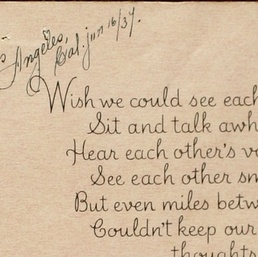 Angeles,
Cal. jun 16/37.
Wish we could see each
Sit and talk awh
Hear each other's vo
See each other sm
But even miles betw
Couldn't keep our
thoughts